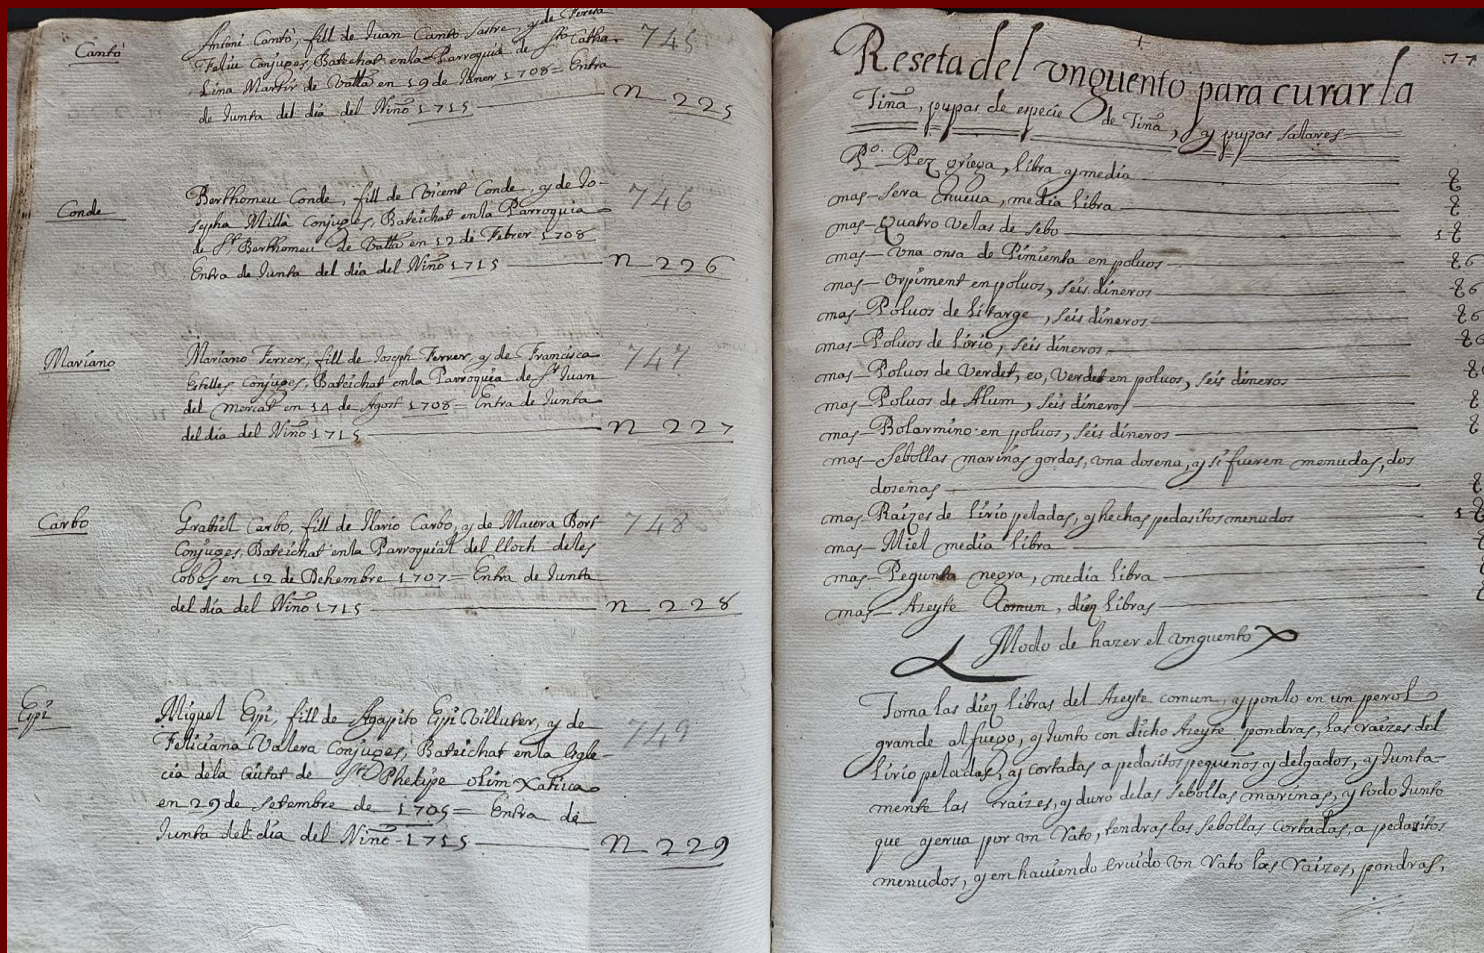 Cantó
Antoni Cantó, fill de Juan Cantó Sastre, y de Teresa
Feliu Conjuges, Bateichat en la Parroquia de Sta Catha-
lina Martir de Valla en 19 de Jener 1708 = Entra
de Junta del dia del Niño 1715
745
n 225
Conde
Berthomeu Conde, fill de Vicent Conde, y de Jo-
sepha Millà Conjuges, Bateichat en la Parroquia
de St Berthomeu de Valla en 12 de Febrer 1708
Entra de Junta del dia del Niño 1715
746
n 226
Mariano
Mariano Ferrer, fill de Joseph Ferrer, y de Francisca
Estelles Conjuges, Bateichat en la Parroquia de St Juan
del mercat en 14 de Agost 1708 = Entra de Junta
del dia del Niño 1715
747
n 227
Carbo
Grabiel Carbo, fill de Ilario Carbo, y de Maura
Conjuges, Bateichat en la Parroquial del lloch de les
Cobes en 12 de Dehembre 1707 = Entra de Junta
del dia del Niño 1715
748
n 228
Espi
Miguel Espi, fill de Agapito Espi Villuter, y de
Feliciana Valera Conjuges, Bateichat en la Egle-
cia de la Ciutat de St Phelipe olim Xativa
en 29 de Setembre de 1705 = Entra de
Junta del dia del Niño 1715
749
n 229
77
Reseta del vnguento para curar la
Tiña, pupas de especie de Tiña, y pupas salares
Po. Pez griega, libra y media
mas Sera nueva, media libra
mas Quatro Velas de Sebo
mas Vna onsa de Pimienta en poluos
mas Orpiment en poluos, seis dineros
mas Poluos de Litarge, seis dineros
mas Poluos de Lirio, seis dineros
mas Poluos de Verdet, eo, Verdet en poluos, seis dineros
mas Poluos de Alum, seis dineros
mas Bolarmino en poluos, seis dineros
mas Sebollas marinas gordas, vna dosena, y si fueren menudas, dos
dosenas
mas Raizes de Lirio peladas, y hechas pedasitos menudos
mas Miel media libra
mas Pegunta negra, media libra
mas Azeyte Comun, diez libras
Modo de hazer el vnguento
Toma las diez libras del Azeyte comun, y ponlo en un perol
grande al fuego, y Junto con dicho Azeyte pondras, las raizes del
Lirio peladas, y cortadas a pedasitos pequeños y delgados, y Junta-
mente las raizes, y duro de las Sebollas marinas, y todo Junto
que yerua por vn Rato, tendras las Sebollas cortadas, a pedasitos
menudos, y en hauiendo eruido vn Rato las raizes, pondras,